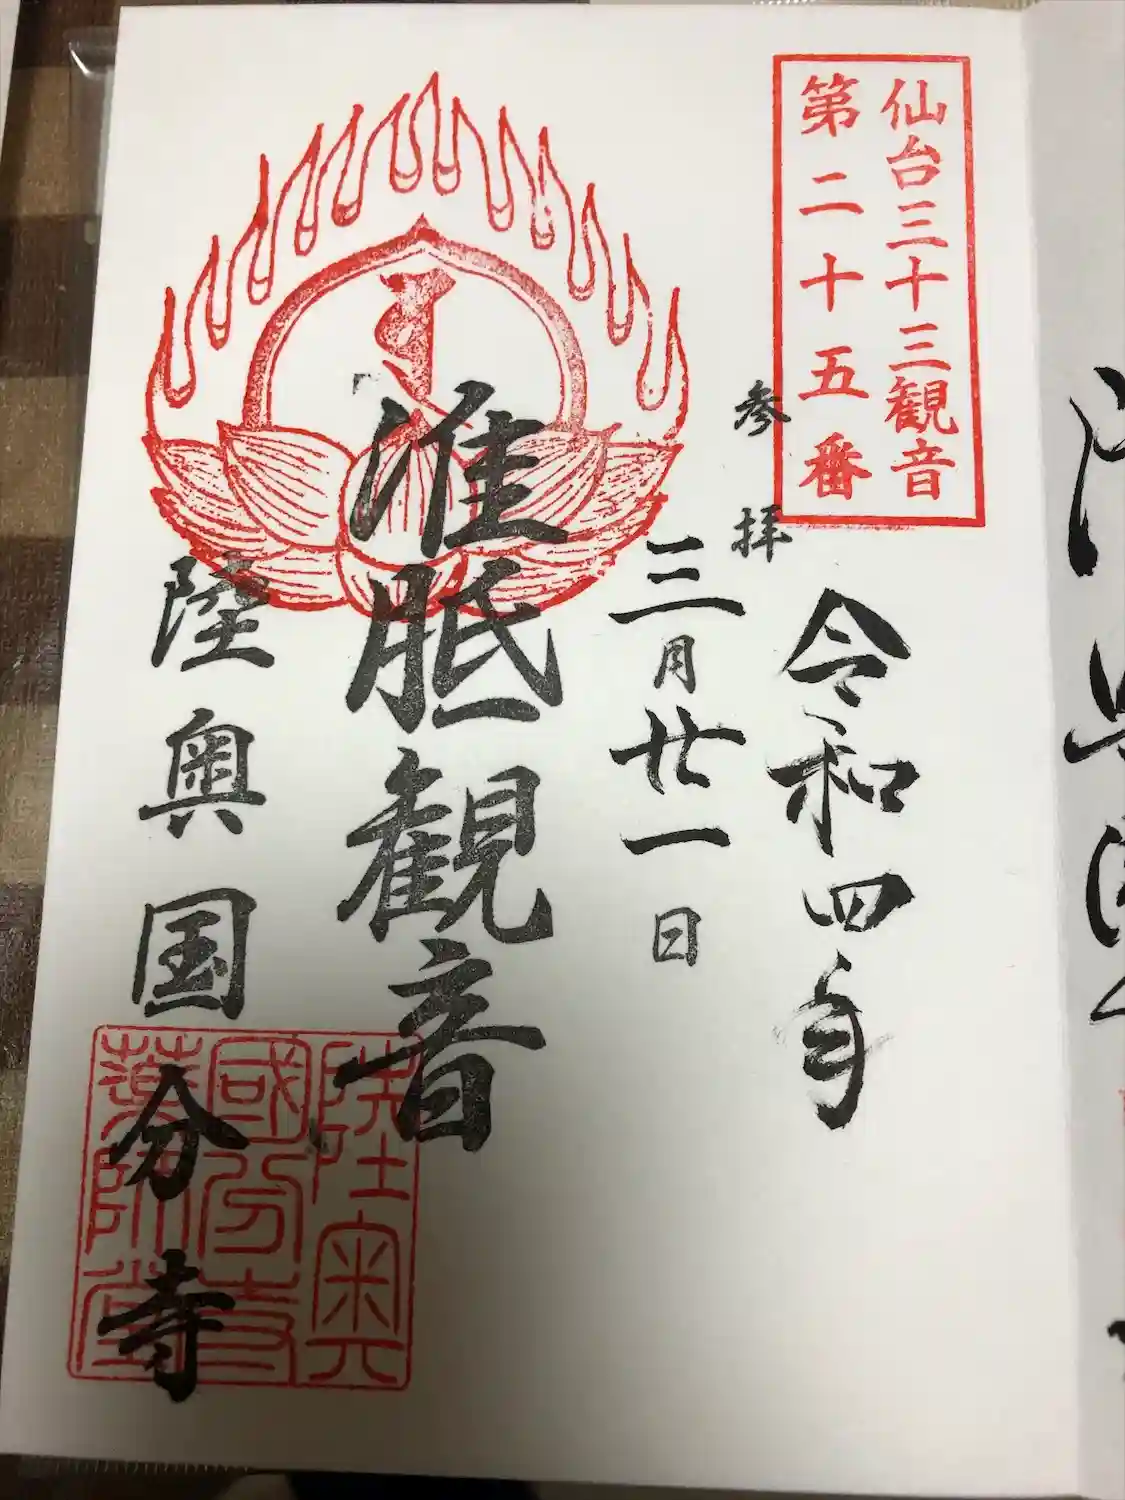 仙台三十三観音
第二十五番
参拝
令和四年
三月廿一日
准胝観音
陸奥国分寺
陸奥
國分寺
薬師堂